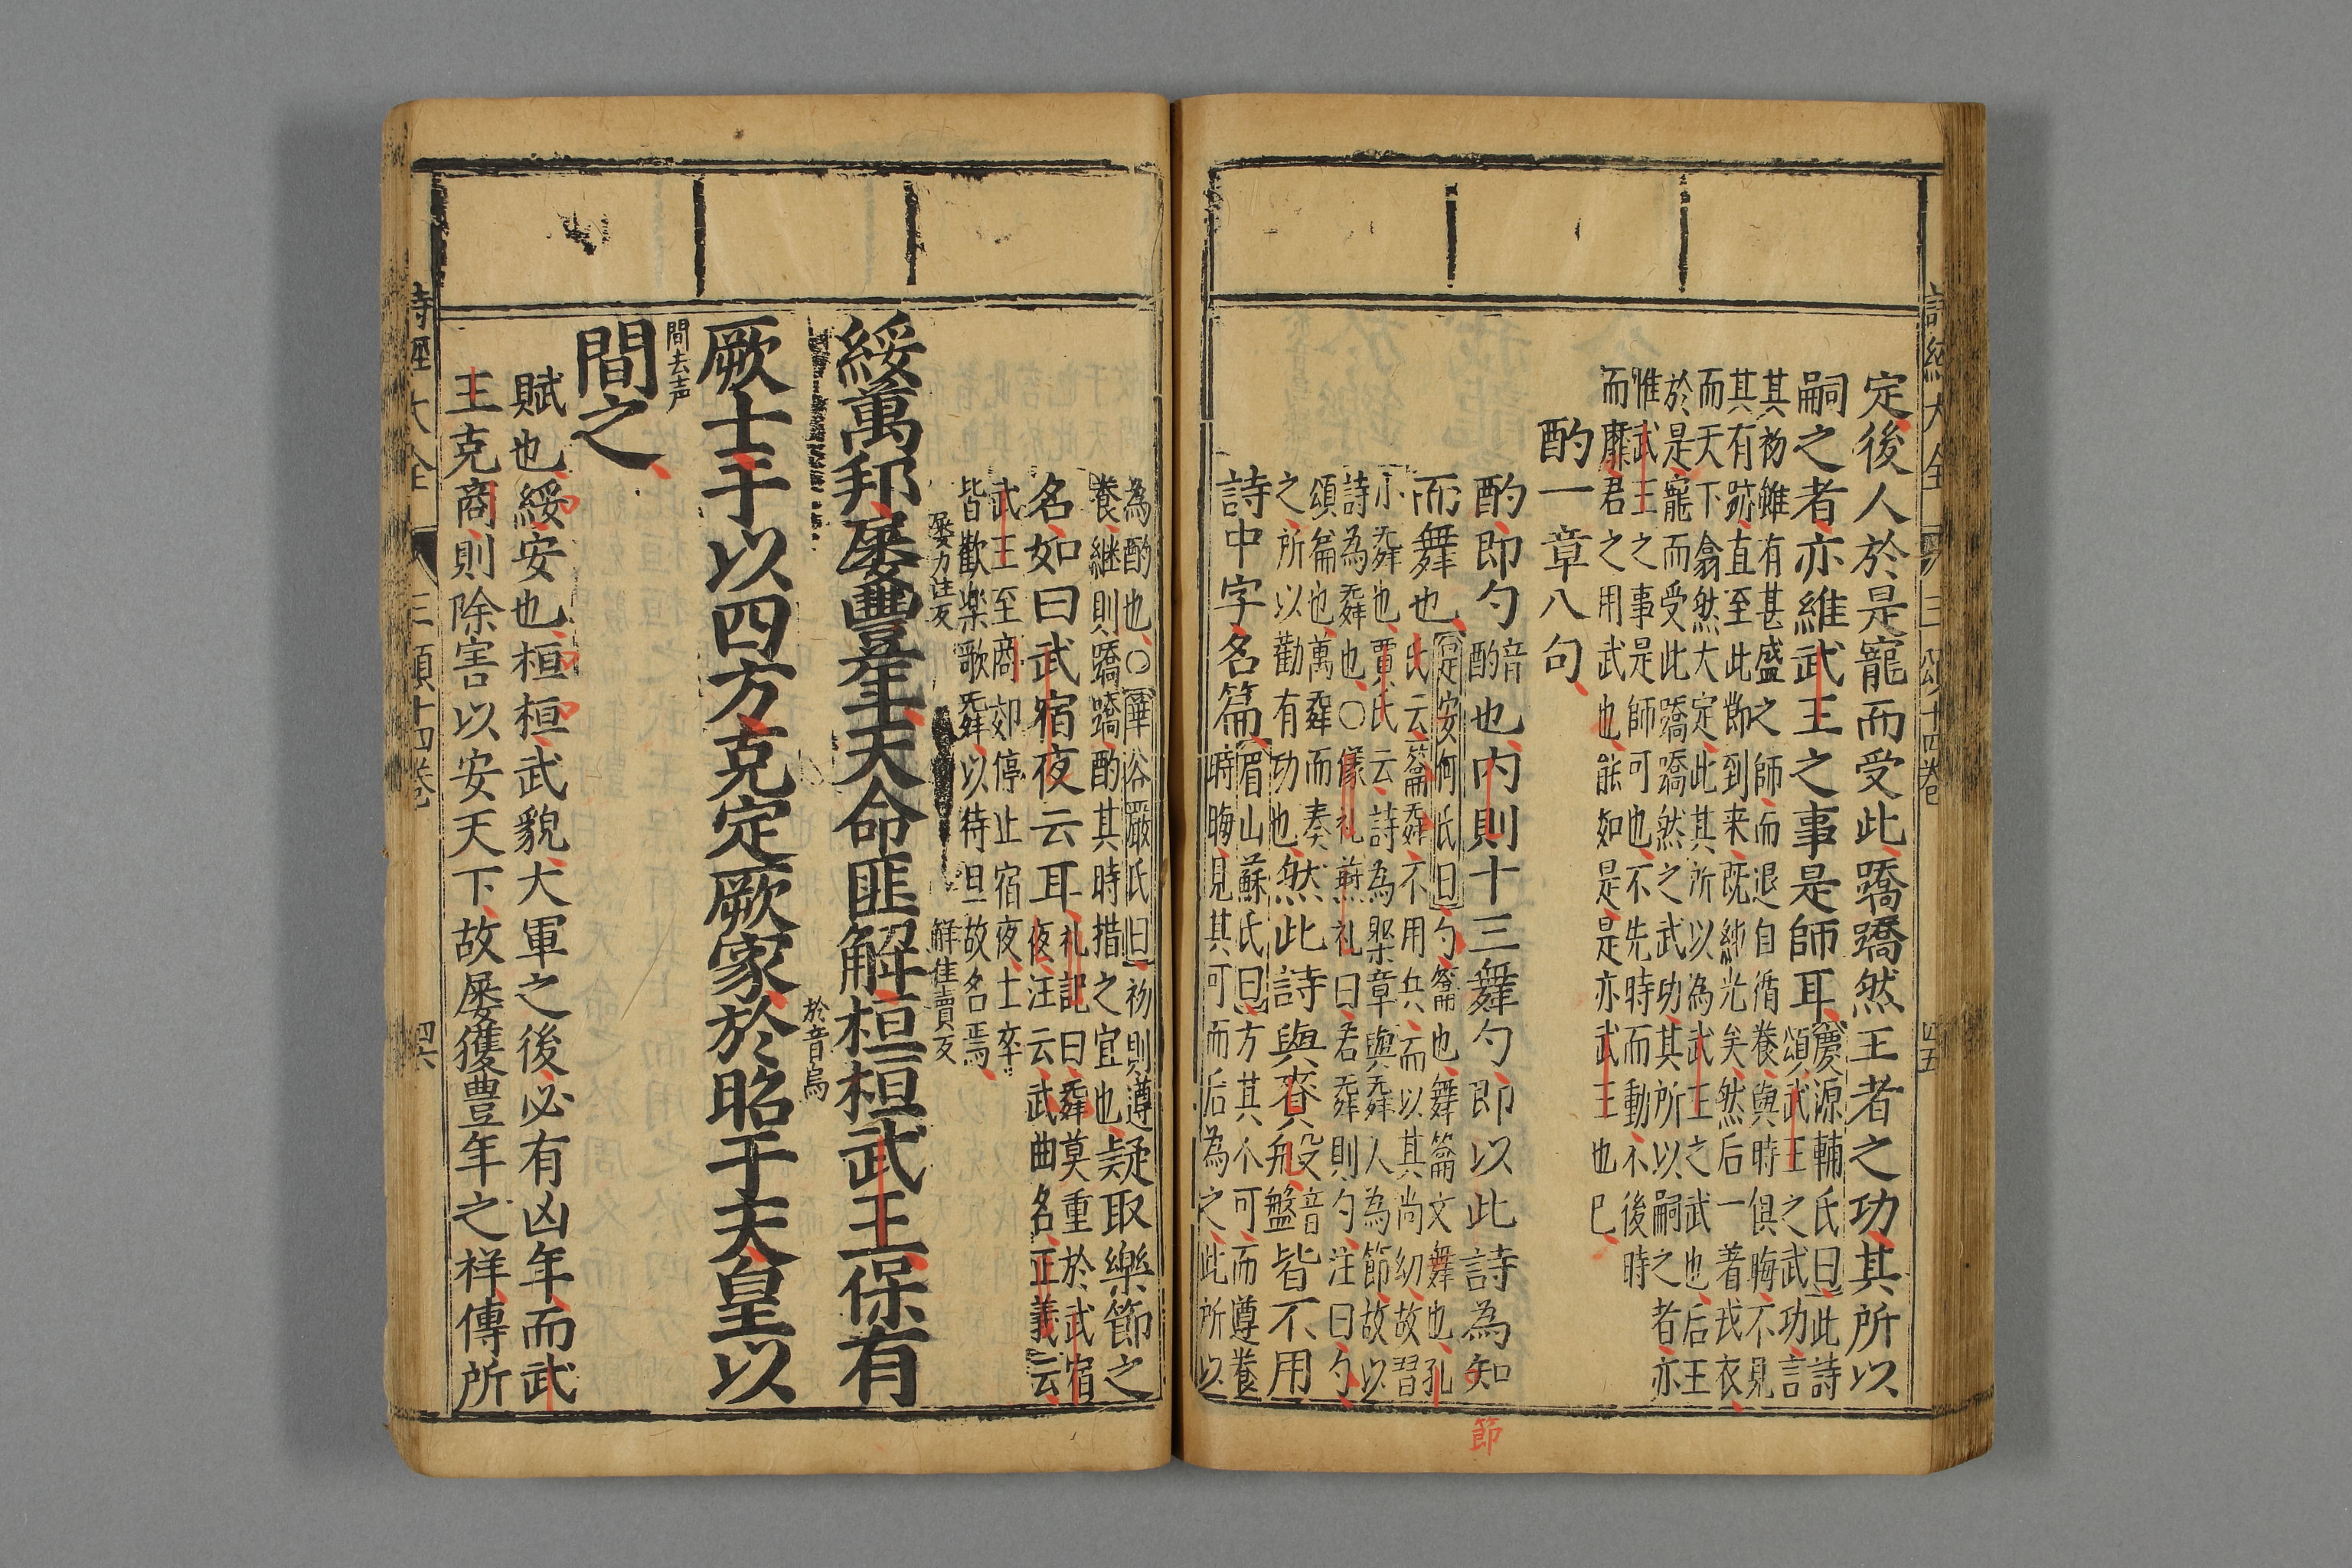 詩經大全 三頌十四卷 四五
定後人於是寵而受此蹻蹻然王者之功其所以
嗣之者亦維武王之事是師耳慶源輔氏曰此詩
頌武王之武功言
其初雖有甚盛之師而退自循養與時俱晦不見
其有跡直至此勣到来既純光矣然后一著戎衣
而天下翕然大定此其所以為武王之武也后王
於是寵而受此蹻蹻然之武功其所以嗣之者亦
惟武王之事是師可也不先時而動不後時
而靡君之用武也能如是是亦武王也已
酌一章八句
酌即勺音酌也内則十三舞勺即以此詩為節
而舞也安定何氏曰勺籥也舞籥文舞也孔
氏云籥舞不用兵而以其尚幼故習
小舞也賈氏云詩為樂章與舞人為節故以
詩為舞也○儀礼燕礼曰君舞則勺注曰勺
頌篇也萬舞而奏
之所以勸有功也然此詩與賚般音盤皆不用
詩中字名篇眉山蘇氏曰方其不可而遵養
時晦見其可而后為之此所以
為酌也○華谷嚴氏曰初則遵
養継則蹻蹻酌其時措之宜也疑取樂節之
名如曰武宿夜云耳礼記曰舞莫重於武宿
夜注云武曲名正義云
武王至商郊停止宿夜士卒
皆歡楽歌舞以待旦故名焉
屡力注反 解佳賣反
綏萬邦屢豐年天命匪解桓桓武王保有
於音烏
厥士于以四方克定厥家於昭于天皇以
間去声
間之
賦也綏安也桓桓武貌大軍之後必有凶年而武
王克商則除害以安天下故屡獲豊年之祥傳所
詩經大全 三頌十四卷 四六
節